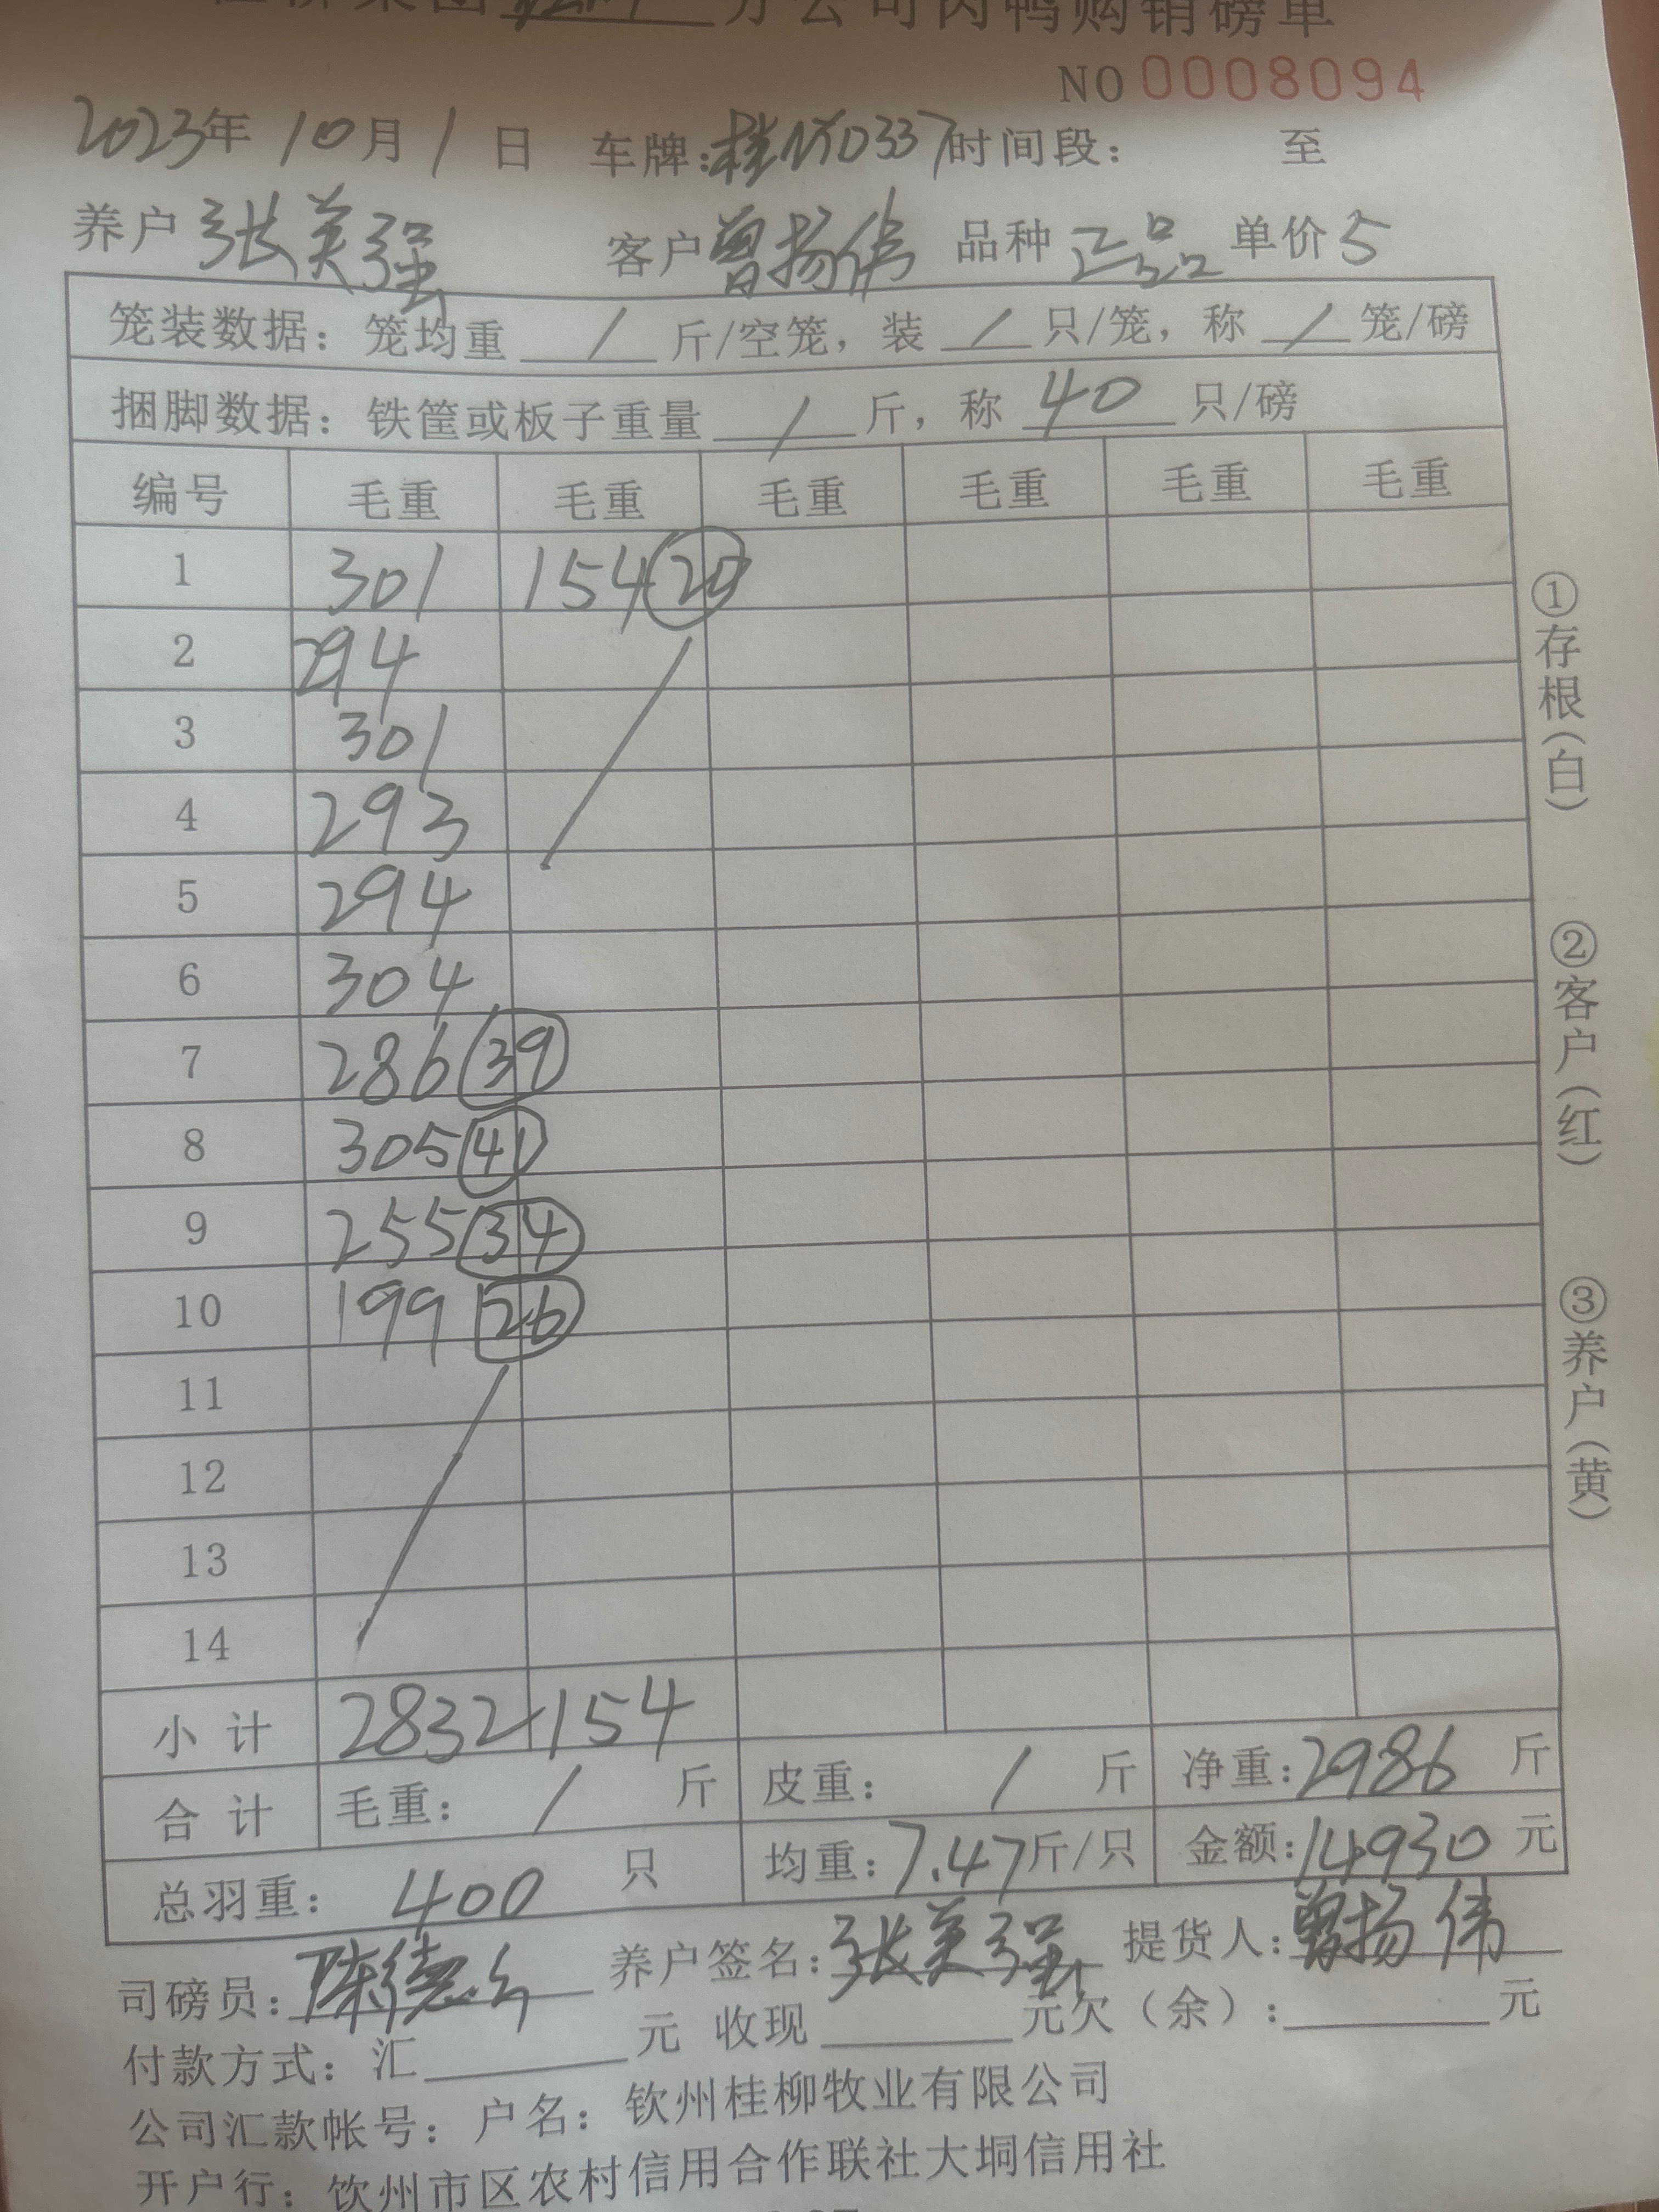 分公司肉鸭购销磅单
NO 0008094
2023年 10月 1 日 车牌: 0337 时间段: 至
养户 张美强 客户 曾扬伟 品种 正品 单价 5
笼装数据: 笼均重 / 斤/空笼, 装 / 只/笼, 称 / 笼/磅
捆脚数据: 铁筐或板子重量 / 斤, 称 40 只/磅
编号 毛重 毛重 毛重 毛重 毛重 毛重
1 301 154 20
2 294
3 301
4 293
5 294
6 304
7 286 39
8 305 41
9 255 34
10 199 26
11
12
13
14
小计 2832 154
合计 毛重: / 斤 皮重: / 斤 净重: 2986 斤
总羽重: 400 只 均重: 7.47 斤/只 金额: 14930 元
司磅员: 陈德 养户签名: 张美强 提货人: 曾扬伟
付款方式: 汇 元 收现 元欠(余): 元
公司汇款帐号: 户名: 钦州桂柳牧业有限公司
开户行: 钦州市区农村信用合作联社大垌信用社
①存根(白)
②客户(红)
③养户(黄)